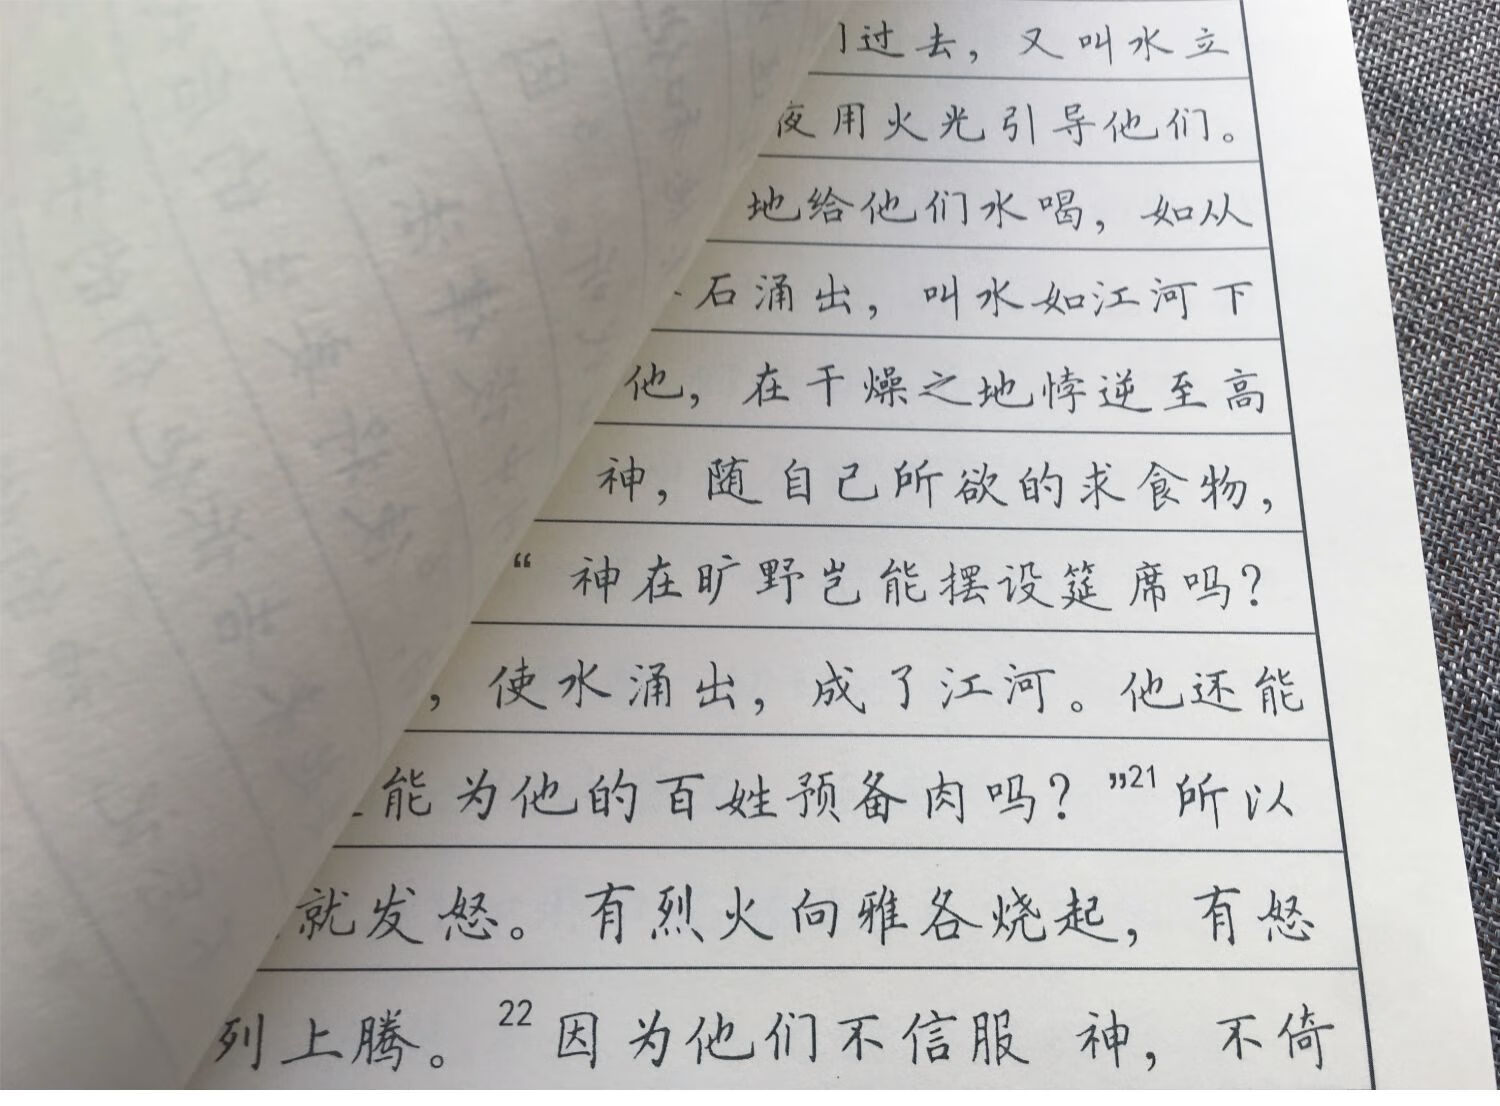 过去，又叫水立
夜用火光引导他们。
地给他们水喝，如从
石涌出，叫水如江河下
他，在干燥之地悖逆至高
神，随自己所欲的求食物，
“ 神在旷野岂能摆设筵席吗？
，使水涌出，成了江河。他还能
能为他的百姓预备肉吗？”21 所以
就发怒。有烈火向雅各烧起，有怒
列上腾。 22 因为他们不信服 神，不倚